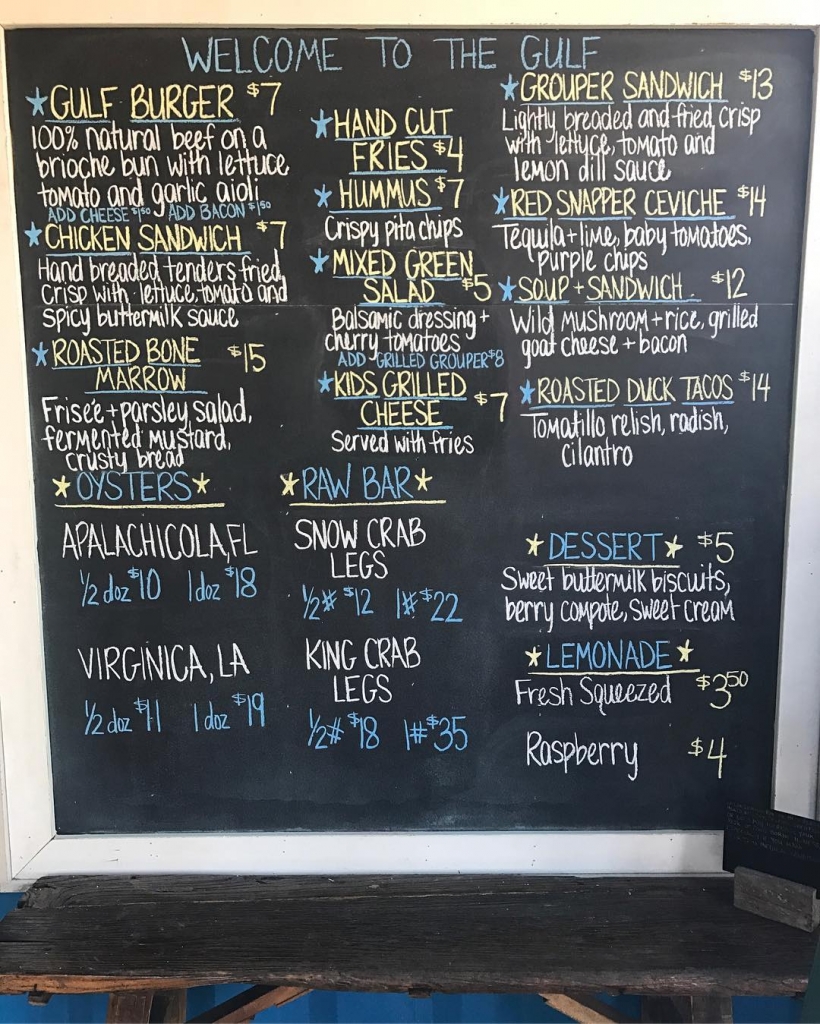 WELCOME TO THE GULF
★GULF BURGER $7
100% natural beef on a
brioche bun with lettuce
tomato and garlic aioli
ADD CHEESE $1.50 ADD BACON $1.50
★CHICKEN SANDWICH $7
Hand breaded tenders fried
crisp with lettuce, tomato and
spicy buttermilk sauce
★ROASTED BONE $15
MARROW
Friseé + parsley salad,
fermented mustard,
crusty bread
★HAND CUT
FRIES $4
★HUMMUS $7
Crispy pita chips
★MIXED GREEN
SALAD $5
Balsamic dressing +
cherry tomatoes
ADD GRILLED GROUPER $8
★KIDS GRILLED
CHEESE $7
Served with fries
★GROUPER SANDWICH $13
Lightly breaded and fried crisp
with lettuce, tomato and
lemon dill sauce
★RED SNAPPER CEVICHE $14
Tequila + lime, baby tomatoes,
purple chips
★SOUP + SANDWICH $12
Wild mushroom + rice, grilled
goat cheese + bacon
★ROASTED DUCK TACOS $14
Tomatillo relish, radish,
cilantro
★OYSTERS★
APALACHICOLA, FL
1/2 doz $10 1 doz $18
VIRGINICA, LA
1/2 doz $11 1 doz $19
★RAW BAR★
SNOW CRAB
LEGS
1/2# $12 1# $22
KING CRAB
LEGS
1/2# $18 1# $35
★DESSERT★ $5
Sweet buttermilk biscuits,
berry compote, sweet cream
★LEMONADE★
Fresh Squeezed $3.50
Raspberry $4